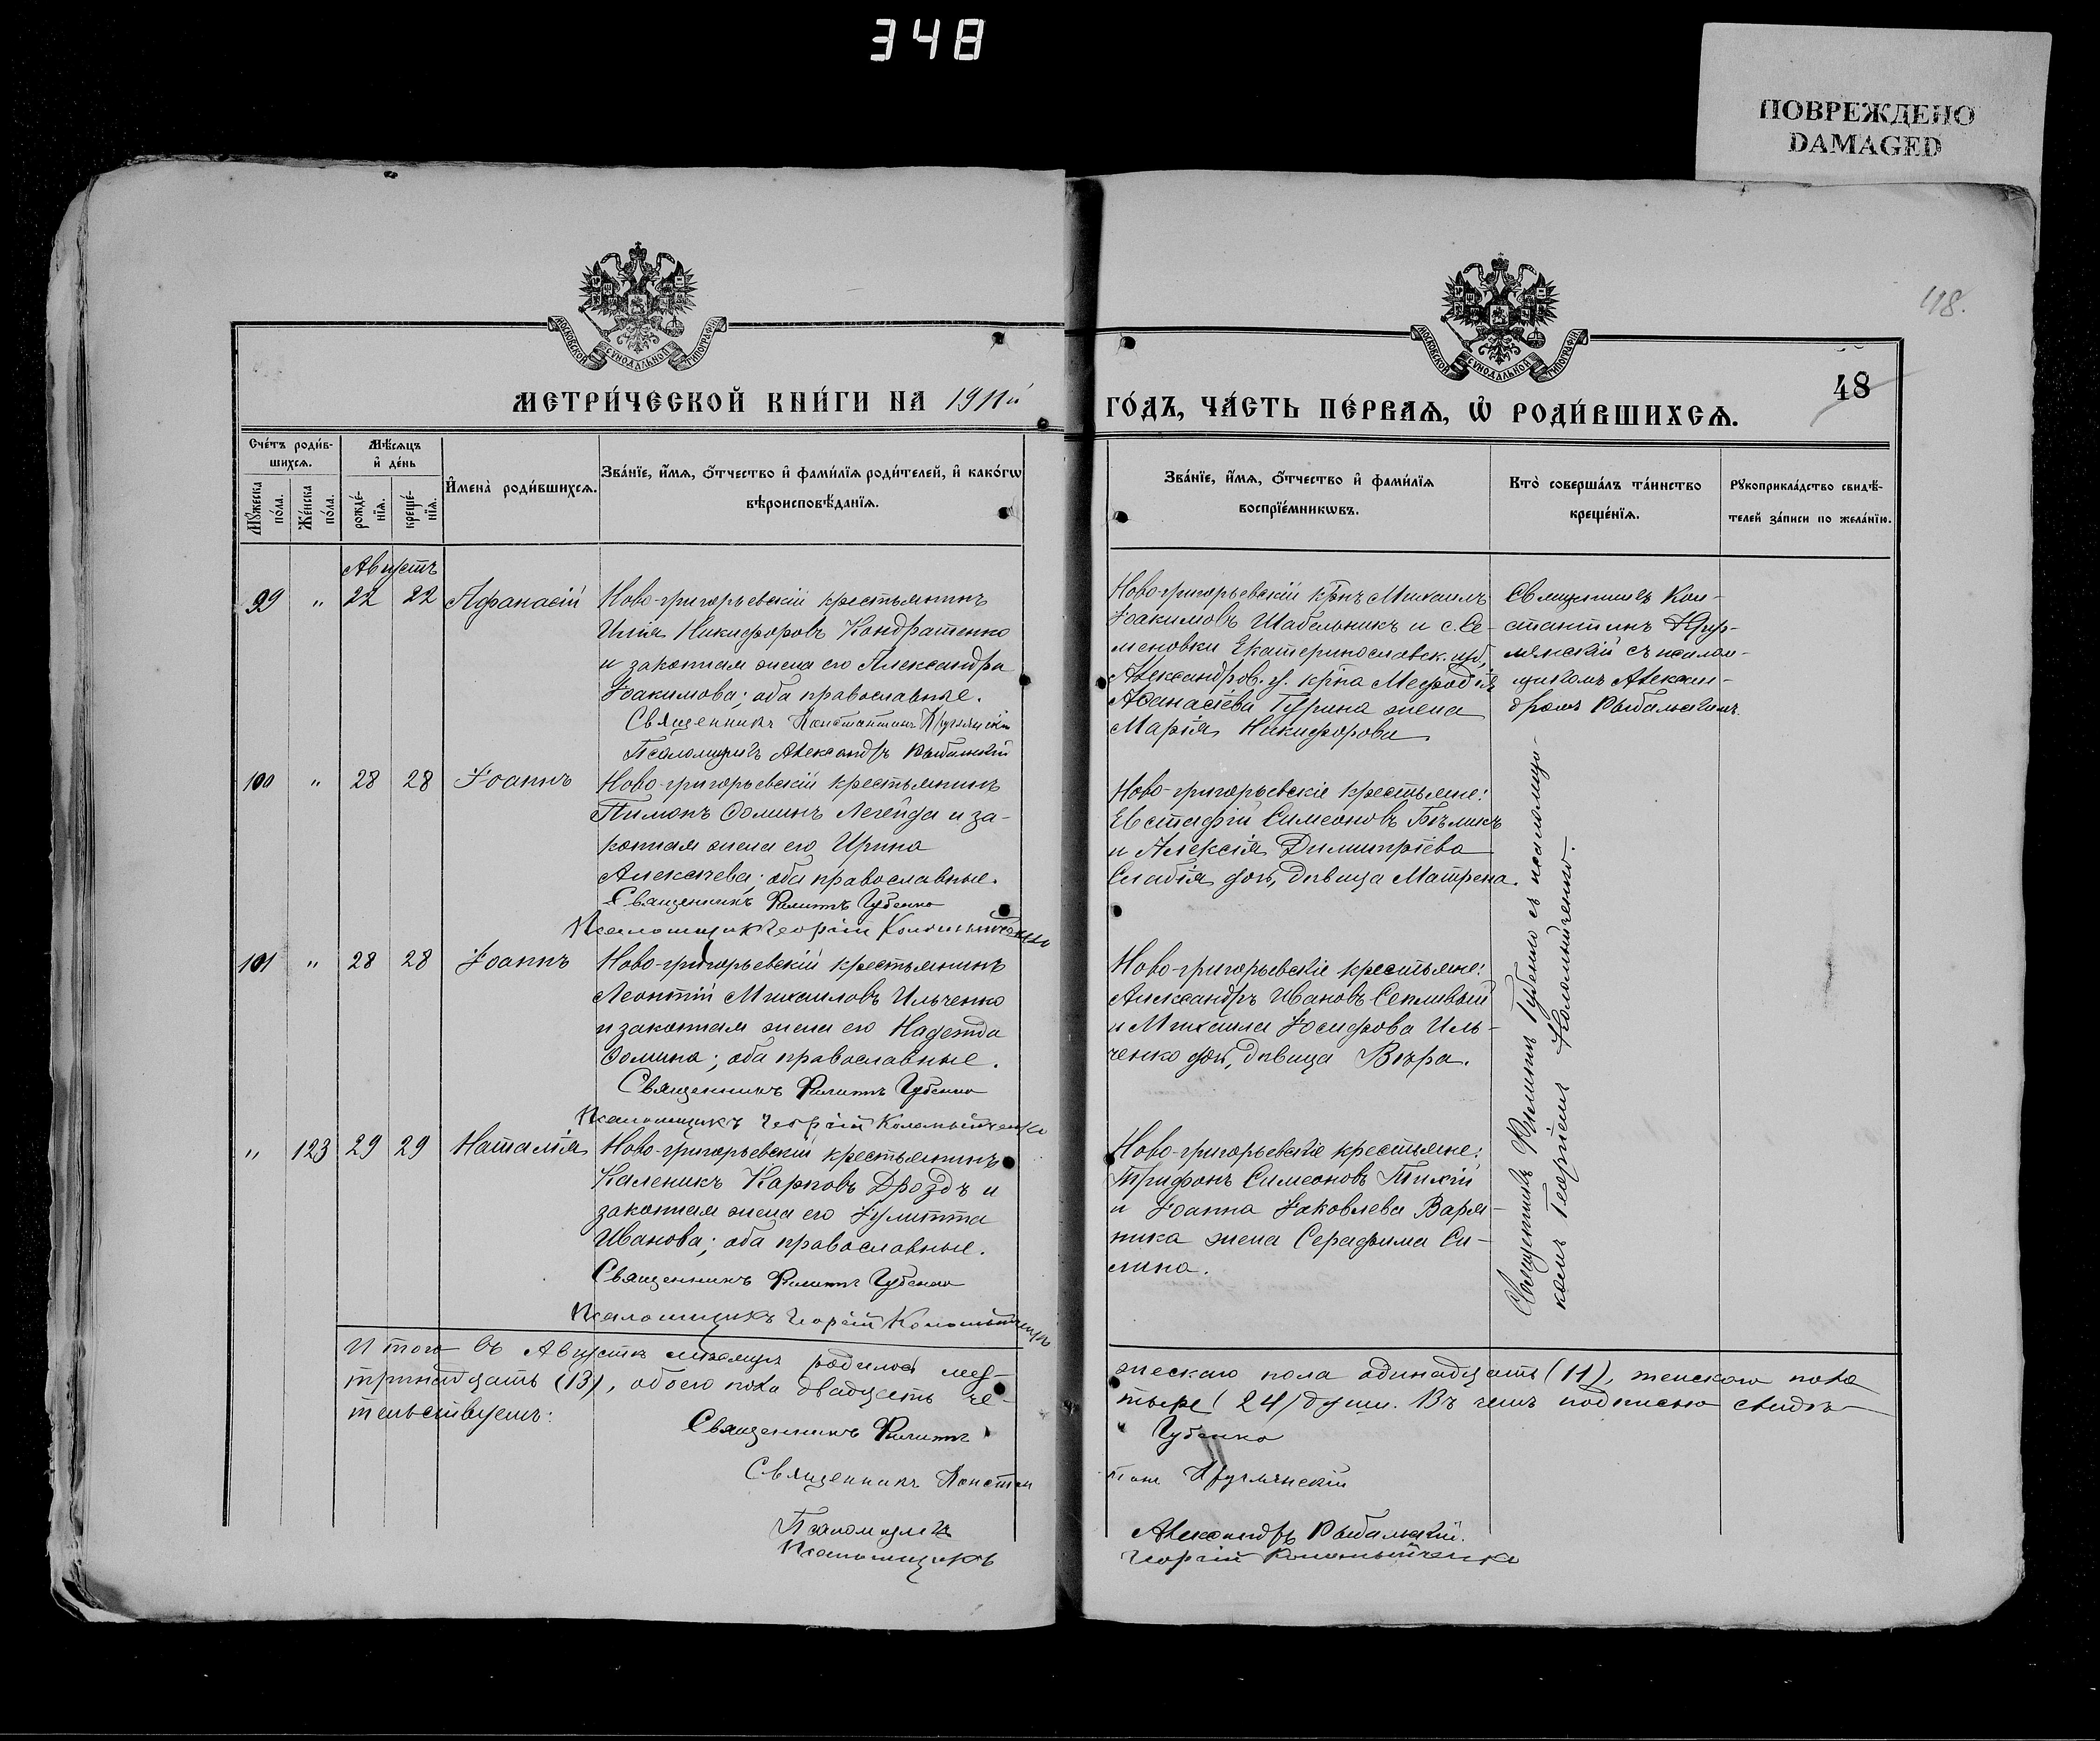 348
ПОВРЕЖДЕНО
DAMAGED
118.
МОСКОВСКОЙ СѴНОДАЛЬНОЙ ТИПОГРАФІИ
МОСКОВСКОЙ СѴНОДАЛЬНОЙ ТИПОГРАФІИ
48
МЕТРИ́ЧЕСКОЙ КНИ́ГИ НА 1911й
ГО́ДЪ, ЧА́СТЬ ПЕ́РВАѦ, Ѡ҆ РОДИ́ВШИХСѦ.
Сче́тъ роди́в-
шихсѧ.
Мꙋ́жеска
по́ла.
Же́нска
по́ла.
Мѣ́сѧцъ
и҆ де́нь
рожде́-
нїѧ.
креще́-
нїѧ.
И҆мена̀ роди́вшихсѧ.
Зва́нїе, и҆́мѧ, ѻ҆́тчество и҆ фами́лїѧ роди́телей, и҆ како́гѡ
вѣроисповѣ́данїѧ.
Зва́нїе, и҆́мѧ, ѻ҆́тчество и҆ фами́лїѧ
воспрїе́мникѡвъ.
Кто̀ соверша́лъ та́инство
креще́нїѧ.
Рꙋкоприкла́дство свидѣ́-
телей за́писи по жела́нїю.
Августъ
99 " 22 22 Аѳанасій
Ново-григорьевскій крестьянинъ
Илія Никифоровъ Кондратенко
и законная жена его Александра
Іоакимова; оба православные.
Священникъ Константинъ
Псаломщикъ Александръ Рыбальскій
Ново-григорьевскій крнъ Михаилъ
Іоакимовъ Шабельникъ и с. Се-
меновки Екатеринославск. губ,
Александров. у. крна Меѳодія
Аѳанасіева Гурина жена
Марія Никифорова
Священникъ Кон-
стантинъ
съ псалом-
щикомъ Алексан-
дромъ Рыбальскимъ.
100 " 28 28 Іоаннъ
Ново-григорьевскій крестьянинъ
Пимонъ Ѳоминъ Легейда и за-
конная жена его Ирина
Алексѣева; оба православные.
Священникъ Филиппъ Губенко
Псаломщикъ Георгій Коломыйченко
Ново-григорьевскіе крестьяне:
Евстафій Симеоновъ Бѣликъ
и Алексія Димитріева
дочь, дѣвица Матрена.
101 " 28 28 Іоаннъ
Ново-григорьевскій крестьянинъ
Леонтій Михаиловъ Ильченко
и законная жена его Надежда
Ѳомина; оба православные.
Священникъ Филиппъ Губенко
Псаломщикъ Георгій Коломыйченко
Ново-григорьевскіе крестьяне:
Александръ Ивановъ Сепливый
и Михаила Іосифова Иль-
ченко дочь, дѣвица Вѣра.
" 123 29 29 Наталія
Ново-григорьевскій крестьянинъ
Каленикъ Карповъ Дроздъ и
законная жена его Іулитта
Иванова; оба православные.
Священникъ Филиппъ Губенко
Псаломщикъ Георгій Коломыйченко
Ново-григорьевскіе крестьяне:
Трифонъ Симеоновъ Тихій
и Іоанна Іаковлева Варя-
ника жена Серафима Си-
лина.
Священникъ Филиппъ Губенко съ псаломщи-
комъ Георгіемъ Коломыйченко.
Итого въ Августѣ мѣсяцѣ родилось муж-
ескаго пола одинадцать (11), женскаго пола
тринадцать (13), обоего пола двадцать че-
тыре (24) души. Въ чемъ подписью свидѣ-
тельствуемъ:
Священникъ Филиппъ Губенко
Священникъ Константинъ
Псаломщикъ Александръ Рыбальскій.
Псаломщикъ Георгій Коломыйченко